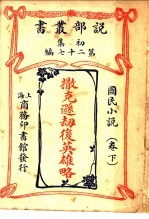 說部叢書
初集
第二十七編
國民小說(卷下)
撒克遜劫後英雄略
上海商務印書館發行